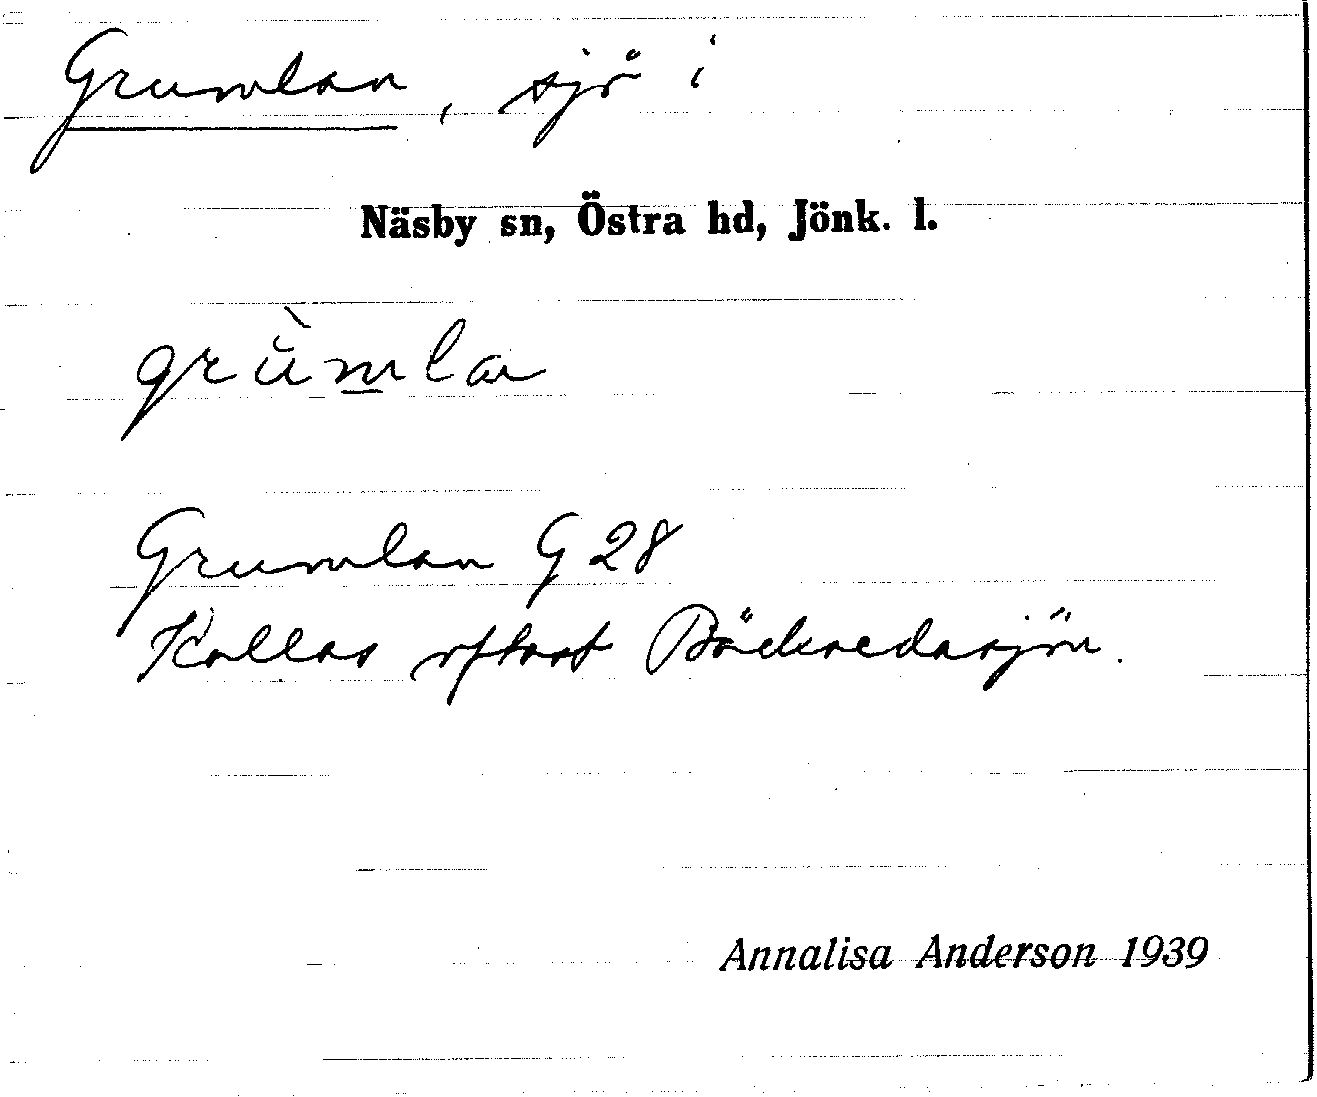 Grumlan, sjö i
Näsby sn, Östra hd, Jönk. l.
grùmlan
Grumlan G 28
Kallas oftast Bäckaedasjön.
Annalisa Anderson 1939